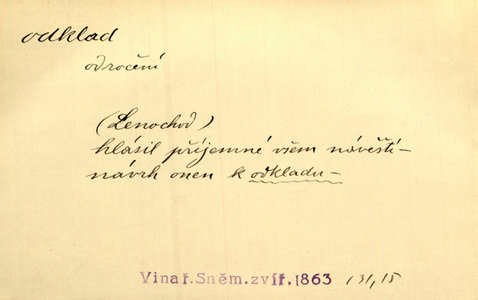 odklad
odročení
(Lenochod)
hlásil příjemné všem návěští –
návrh onen k odkladu –
Vinař.Sněm.zvíř.1863 131,15